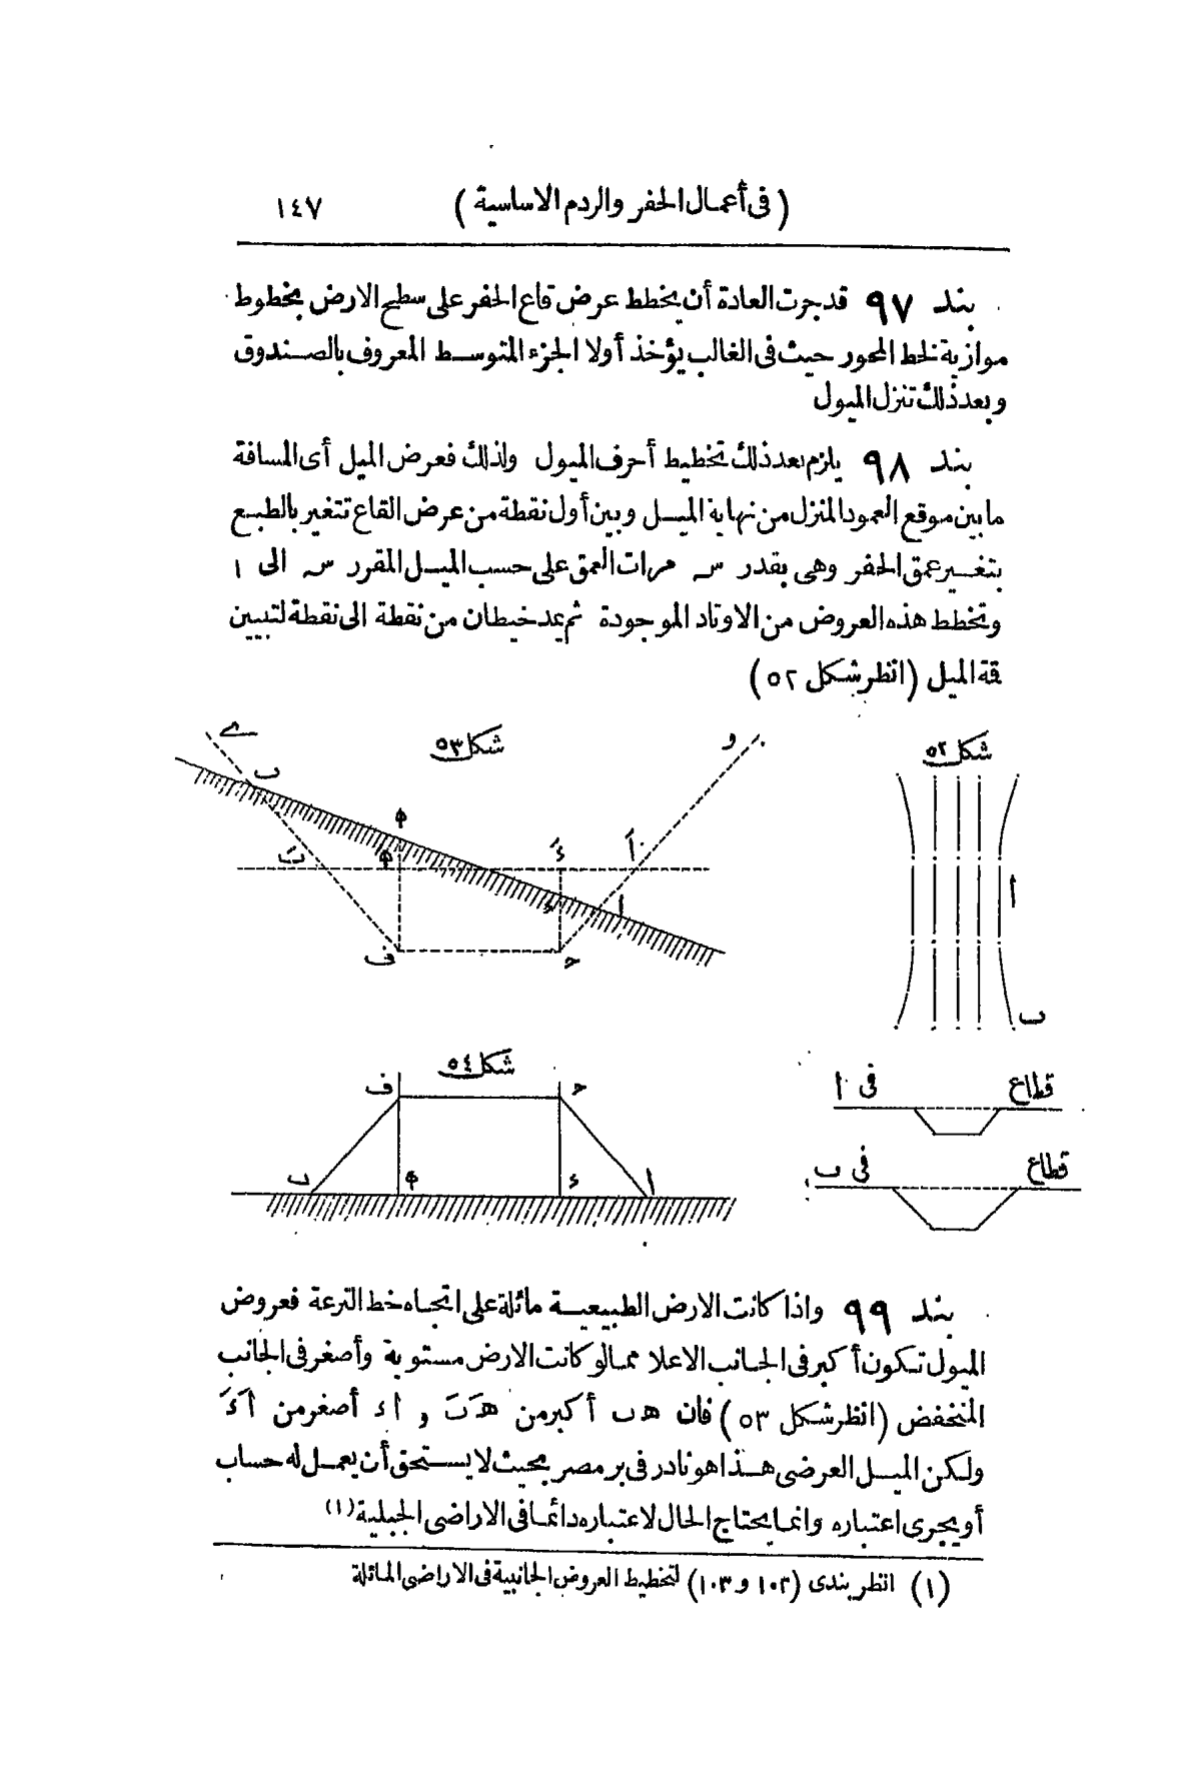 (فى أعمال الحفر والردم الاساسية) ١٤٧
بند ٩٧ قد جرت العادة أن يخطط عرض قاع الحفر على سطح الارض بخطوط
موازية لخط المحور حيث فى الغالب يؤخذ أولا الجزء المتوسط المعروف بالصندوق
وبعد ذلك تنزل الميول
بند ٩٨ يلزم بعد ذلك تخطيط أحرف الميول ولذلك فعرض الميل أى المسافة
ما بين موقع العمود المنزل من نهاية الميل وبين أول نقطة من عرض القاع تتغير بالطبع
بتغير عمق الحفر وهى بقدر س مرات العمق على حسب الميل المقرر س الى ١
وتخطط هذه العروض من الاوتاد الموجودة ثم يمد خيطان من نقطة الى نقطة لتبيين
قمة الميل (انظر شكل ٥٢)
شكل ٥٢
ا
ب
قطاع فى ا
قطاع فى ب
شكل ٥٣
ى
و
ب
هـ
بَ
هـَ
ءَ
اَ
ء
ا
ف
ح
شكل ٥٤
ف
ح
ب
هـ
ء
ا
بند ٩٩ واذا كانت الارض الطبيعية مائلة على اتجاه خط الترعة فعروض
الميول تكون أكبر فى الجانب الاعلا ممالو كانت الارض مستوية وأصغر فى الجانب
المنخفض (انظر شكل ٥٣) فان هـ ب أكبر من هـَ بَ و ا ء أصغر من اَ ءَ
ولكن الميل العرضى هذا هو نادر فى بر مصر بحيث لا يستحق أن يعمل له حساب
أو يجرى اعتباره وانما يحتاج الحال لاعتباره دائما فى الاراضى الجبلية (١)
(١) انظر بندى (١٠٢ و ١٠٣) لتخطيط العروض الجانبية فى الاراضى المائلة